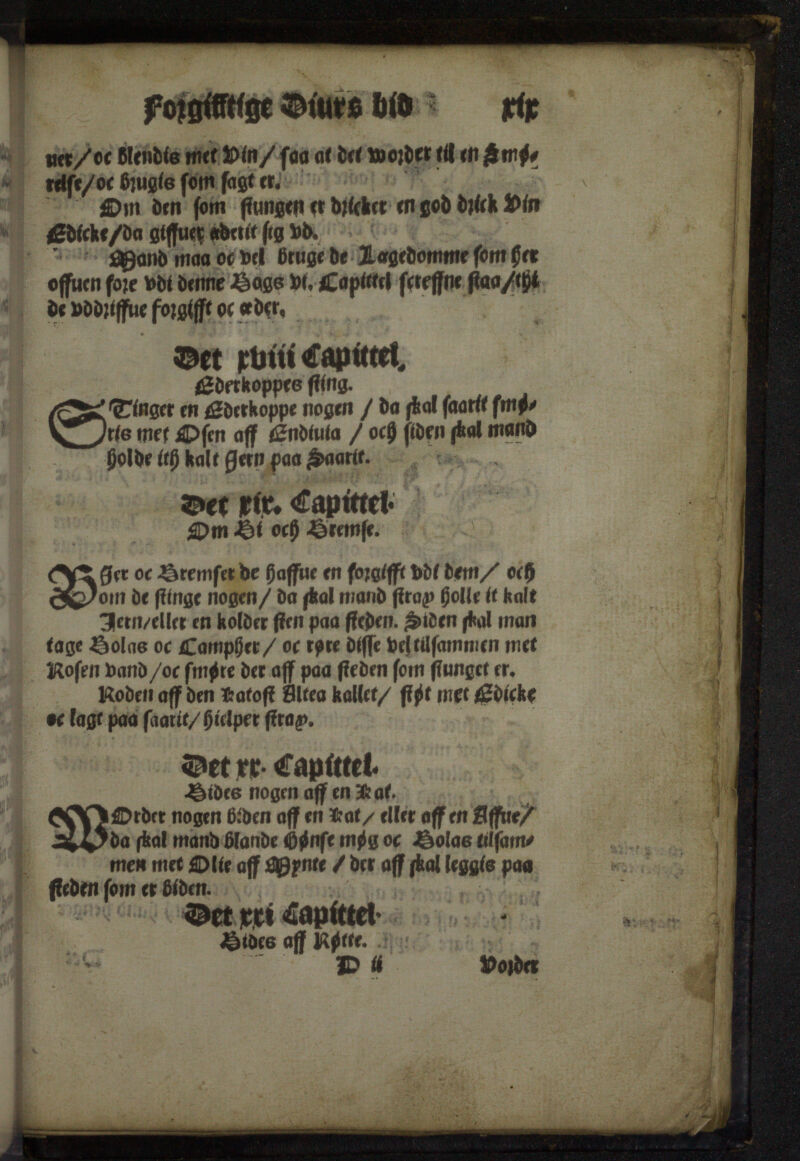 Forgifftige Diurs bid xix
uer/oc blendis met Vin/ saa at det vorder til en Smø⸗
relse/oc brugis som sagt er.
Om den som stungen er dricker en god drick Vin
Edicke/da giffuer ederit sig vd.
Mand maa oc vel bruge de Lægedomme som her
offuen fore vdi denne Bogs vi. Capittel screffne staa/thi
de vddriffue forgifft oc æder.
Det xviii Capittel.
Ederkoppes sting.
STinger en Ederkoppe nogen / da skal saarit smø⸗
ris met Osen aff Endiuia / och siden skal mand
holde ith kalt Jern paa Saarit.
Det xix. Capittel.
Om Bi och Bremse.
BJer oc Bremser de haffue en forgifft vdi dem/ och
om de stinge nogen/ da skal mand strax holle it kalt
Jern/eller en kolder sten paa steden. Siden skal man
tage Bolas oc Campher/ oc røre disse vel tilsammen met
Rosen vand/oc smøre der aff paa steden som stunget er.
Roden aff den Katost Altea kallet/ støt met Edicke
oc lagt paa saarit/hielper strax.
Det xx. Capittel.
Bides nogen aff en Kat.
VOrder nogen biden aff en Kat/ eller aff en Affue/
da skal mand blande Hønse møg oc Bolas tilsam⸗
men met Olie aff Mynte / der aff skal leggis paa
steden som er biden.
Det xxi Capittel.
Bides aff Røtte.
D ii Vorder